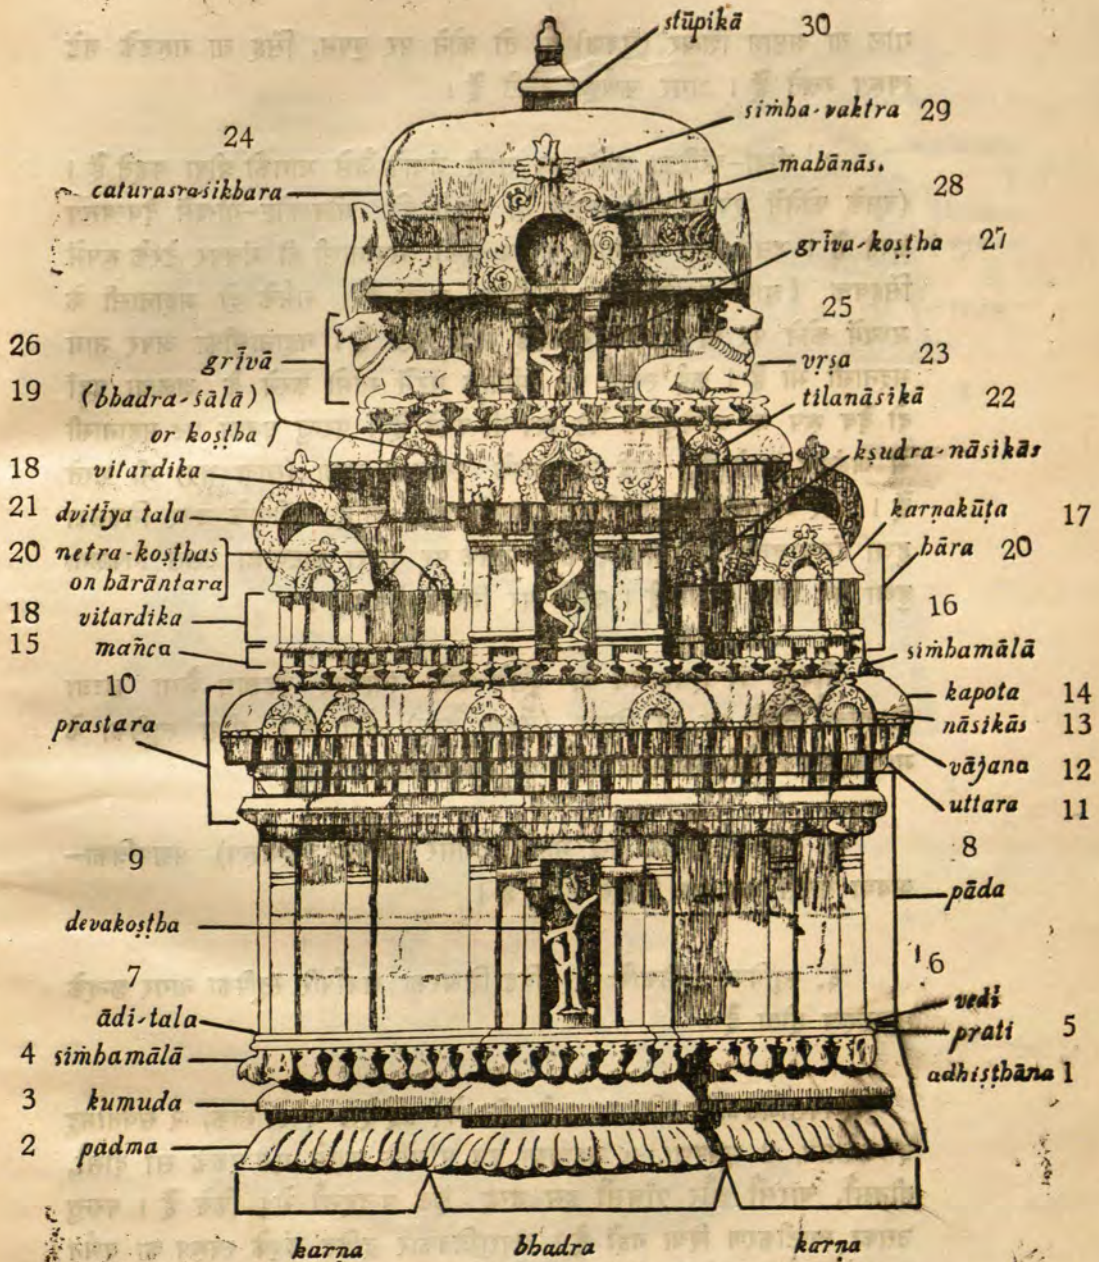 stūpikā 30
siṁha-vaktra 29
24
mahānās.
caturasraśikhara
28
grīva-koṣṭha 27
25
26
grīvā
vṛṣa 23
19 (bhadra-śālā)
or koṣṭha
tilanāsikā 22
18 vitardika
kṣudra-nāsikās
21 dvitīya tala
karṇakūṭa 17
20 netra-koṣṭhas
on hārāntara
hāra 20
18 vitardika
16
15 mañca
siṁhamālā
10
prastara
kapota 14
nāsikās 13
vājana 12
uttara 11
9
8
pāda
devakoṣṭha
7
6
ādi-tala
vedi
prati 5
4 siṁhamālā
adhiṣṭhāna 1
3 kumuda
2 padma
karṇa bhadra karṇa